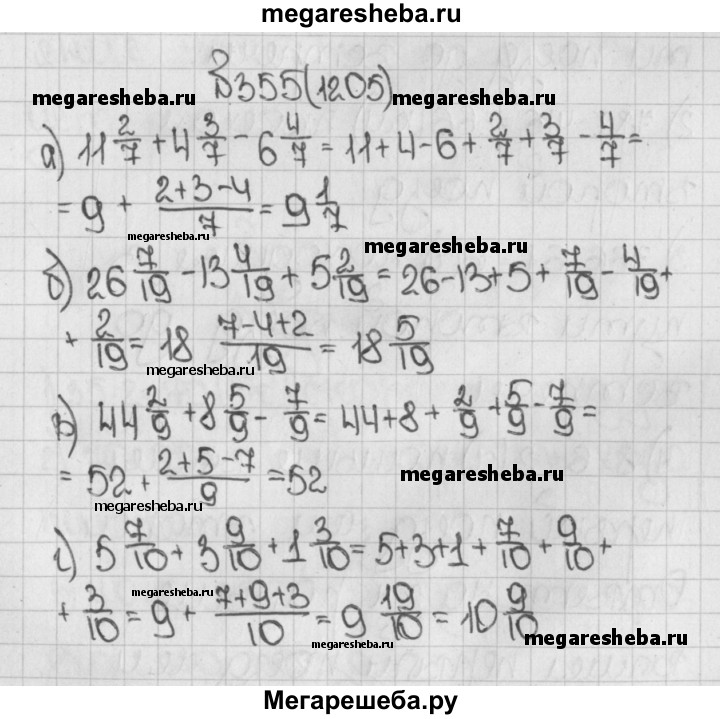 megaresheba.ru
№355(1205)
megaresheba.ru megaresheba.ru
а) 11 2/7 + 4 3/7 - 6 4/7 = 11+4-6+ 2/7 + 3/7 - 4/7 =
= 9 + (2+3-4)/7 = 9 1/7
megaresheba.ru megaresheba.ru
б) 26 7/19 - 13 4/19 + 5 2/19 = 26-13+5+ 7/19 - 4/19 +
+ 2/19 = 18 (7-4+2)/19 = 18 5/19
megaresheba.ru
в) 44 2/9 + 8 5/9 - 7/9 = 44+8+ 2/9 + 5/9 - 7/9 =
= 52 + (2+5-7)/9 = 52 megaresheba.ru
megaresheba.ru
г) 5 7/10 + 3 9/10 + 1 3/10 = 5+3+1+ 7/10 + 9/10 +
megaresheba.ru
+ 3/10 = 9 + (7+9+3)/10 = 9 19/10 = 10 9/10
megaresheba.ru megaresheba.ru
Мегарешеба.ру